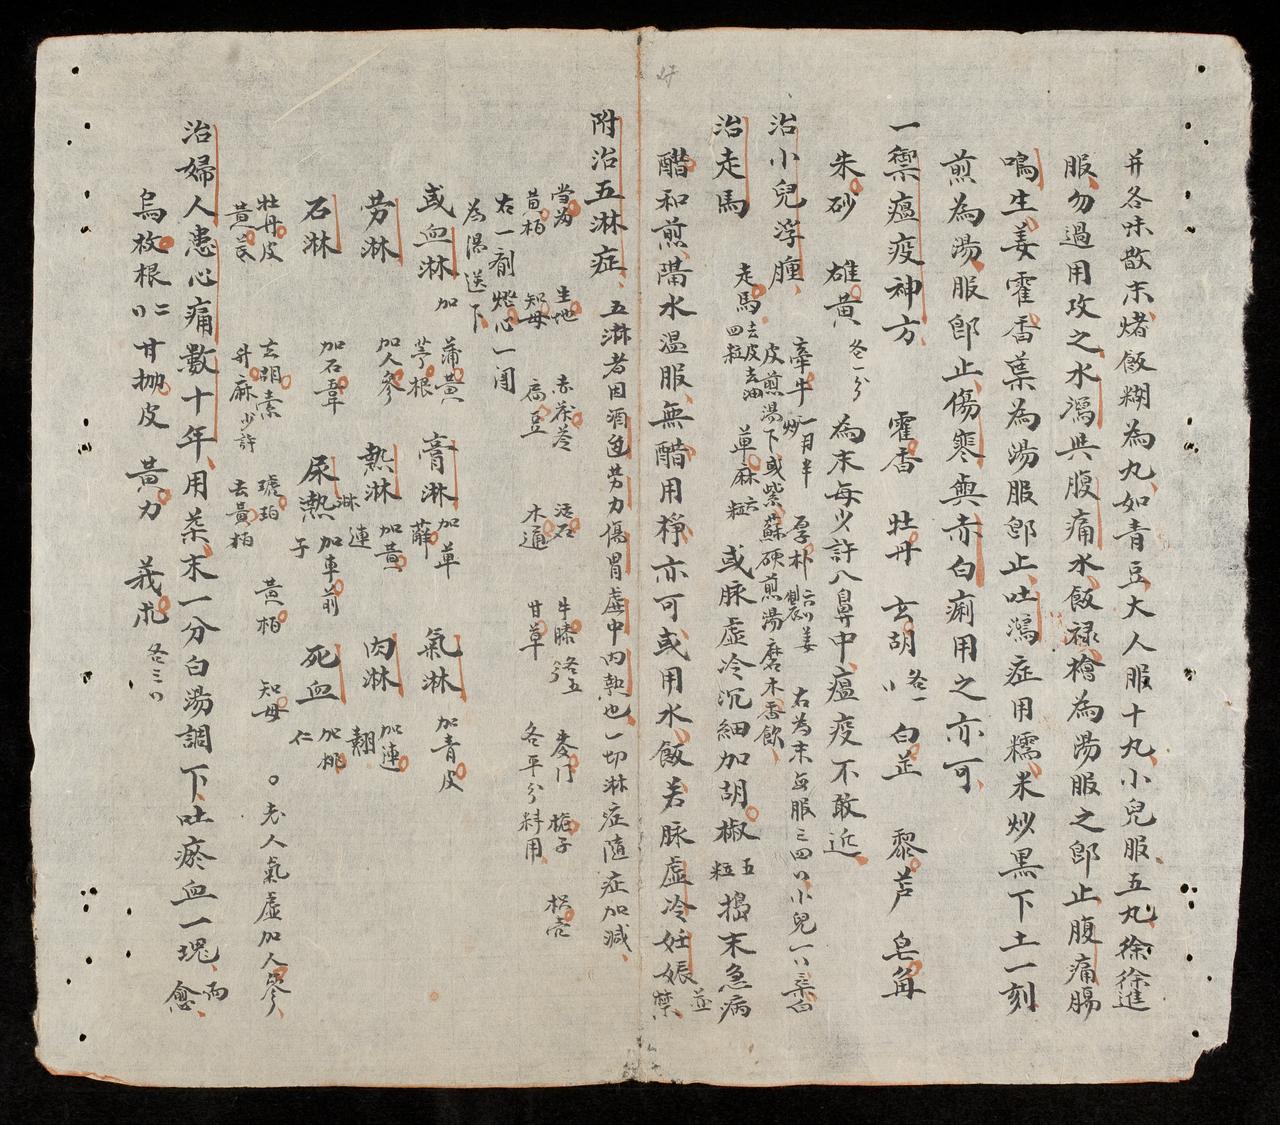 并各味散末煑飯糊為丸如青豆大人服十丸小兒服五丸徐徐進
服勿過用攻之水瀉與腹痛水飯祿檜為湯服之即止腹痛腸
鳴生姜霍香葉為湯服即止吐瀉症用糯米炒黑下土一刻
煎為湯服即止傷寒與赤白痢用之亦可
一禦瘟疫神方
霍香 牡丹 玄胡各一〢 白芷 藜芦 皂角
朱砂 雄黃各一分 為末每少許入鼻中瘟疫不敢近
治小兒浮腫
牽牛一月半炒 厚朴六〢姜製 右為末每服三四〢小兒一〢
皮煎湯下或紫蘇硬煎湯磨木香飲
治走馬 走馬四粒去皮去油 草麻六粒 或脉虛冷沉細加胡椒五粒搗末急病
醋和煎滯水溫服無醋用 亦可或用水飯若脉虛冷妊娠並禁
附治五淋症 五淋者因酒色劳力傷胃虛中內熱也一切淋症隨症加減
當歸 生地 赤茯苓 活石 牛膝各五分 麦门 梔子 枳壳
黃栢 知母 扁豆 木通 甘草 各平分料用
右一劑燈心一團
為湯送下
或血淋加蒲黃茅根 膏淋加草薢 氣淋加青皮
劳淋加人參 熱淋加黃連 肉淋加連翹
石淋加石韋 尿熱淋加車前子 死血加桃仁
牡丹皮 玄胡索 琥珀 黃栢 知母 。老人氣虛加人參
黃芪 升麻少許 去黃栢
治婦人患心痛數十年用茶末一分白湯調下吐瘀血一塊而愈
烏枚根二〢 甘抛皮 黃力 莪朮各三〢